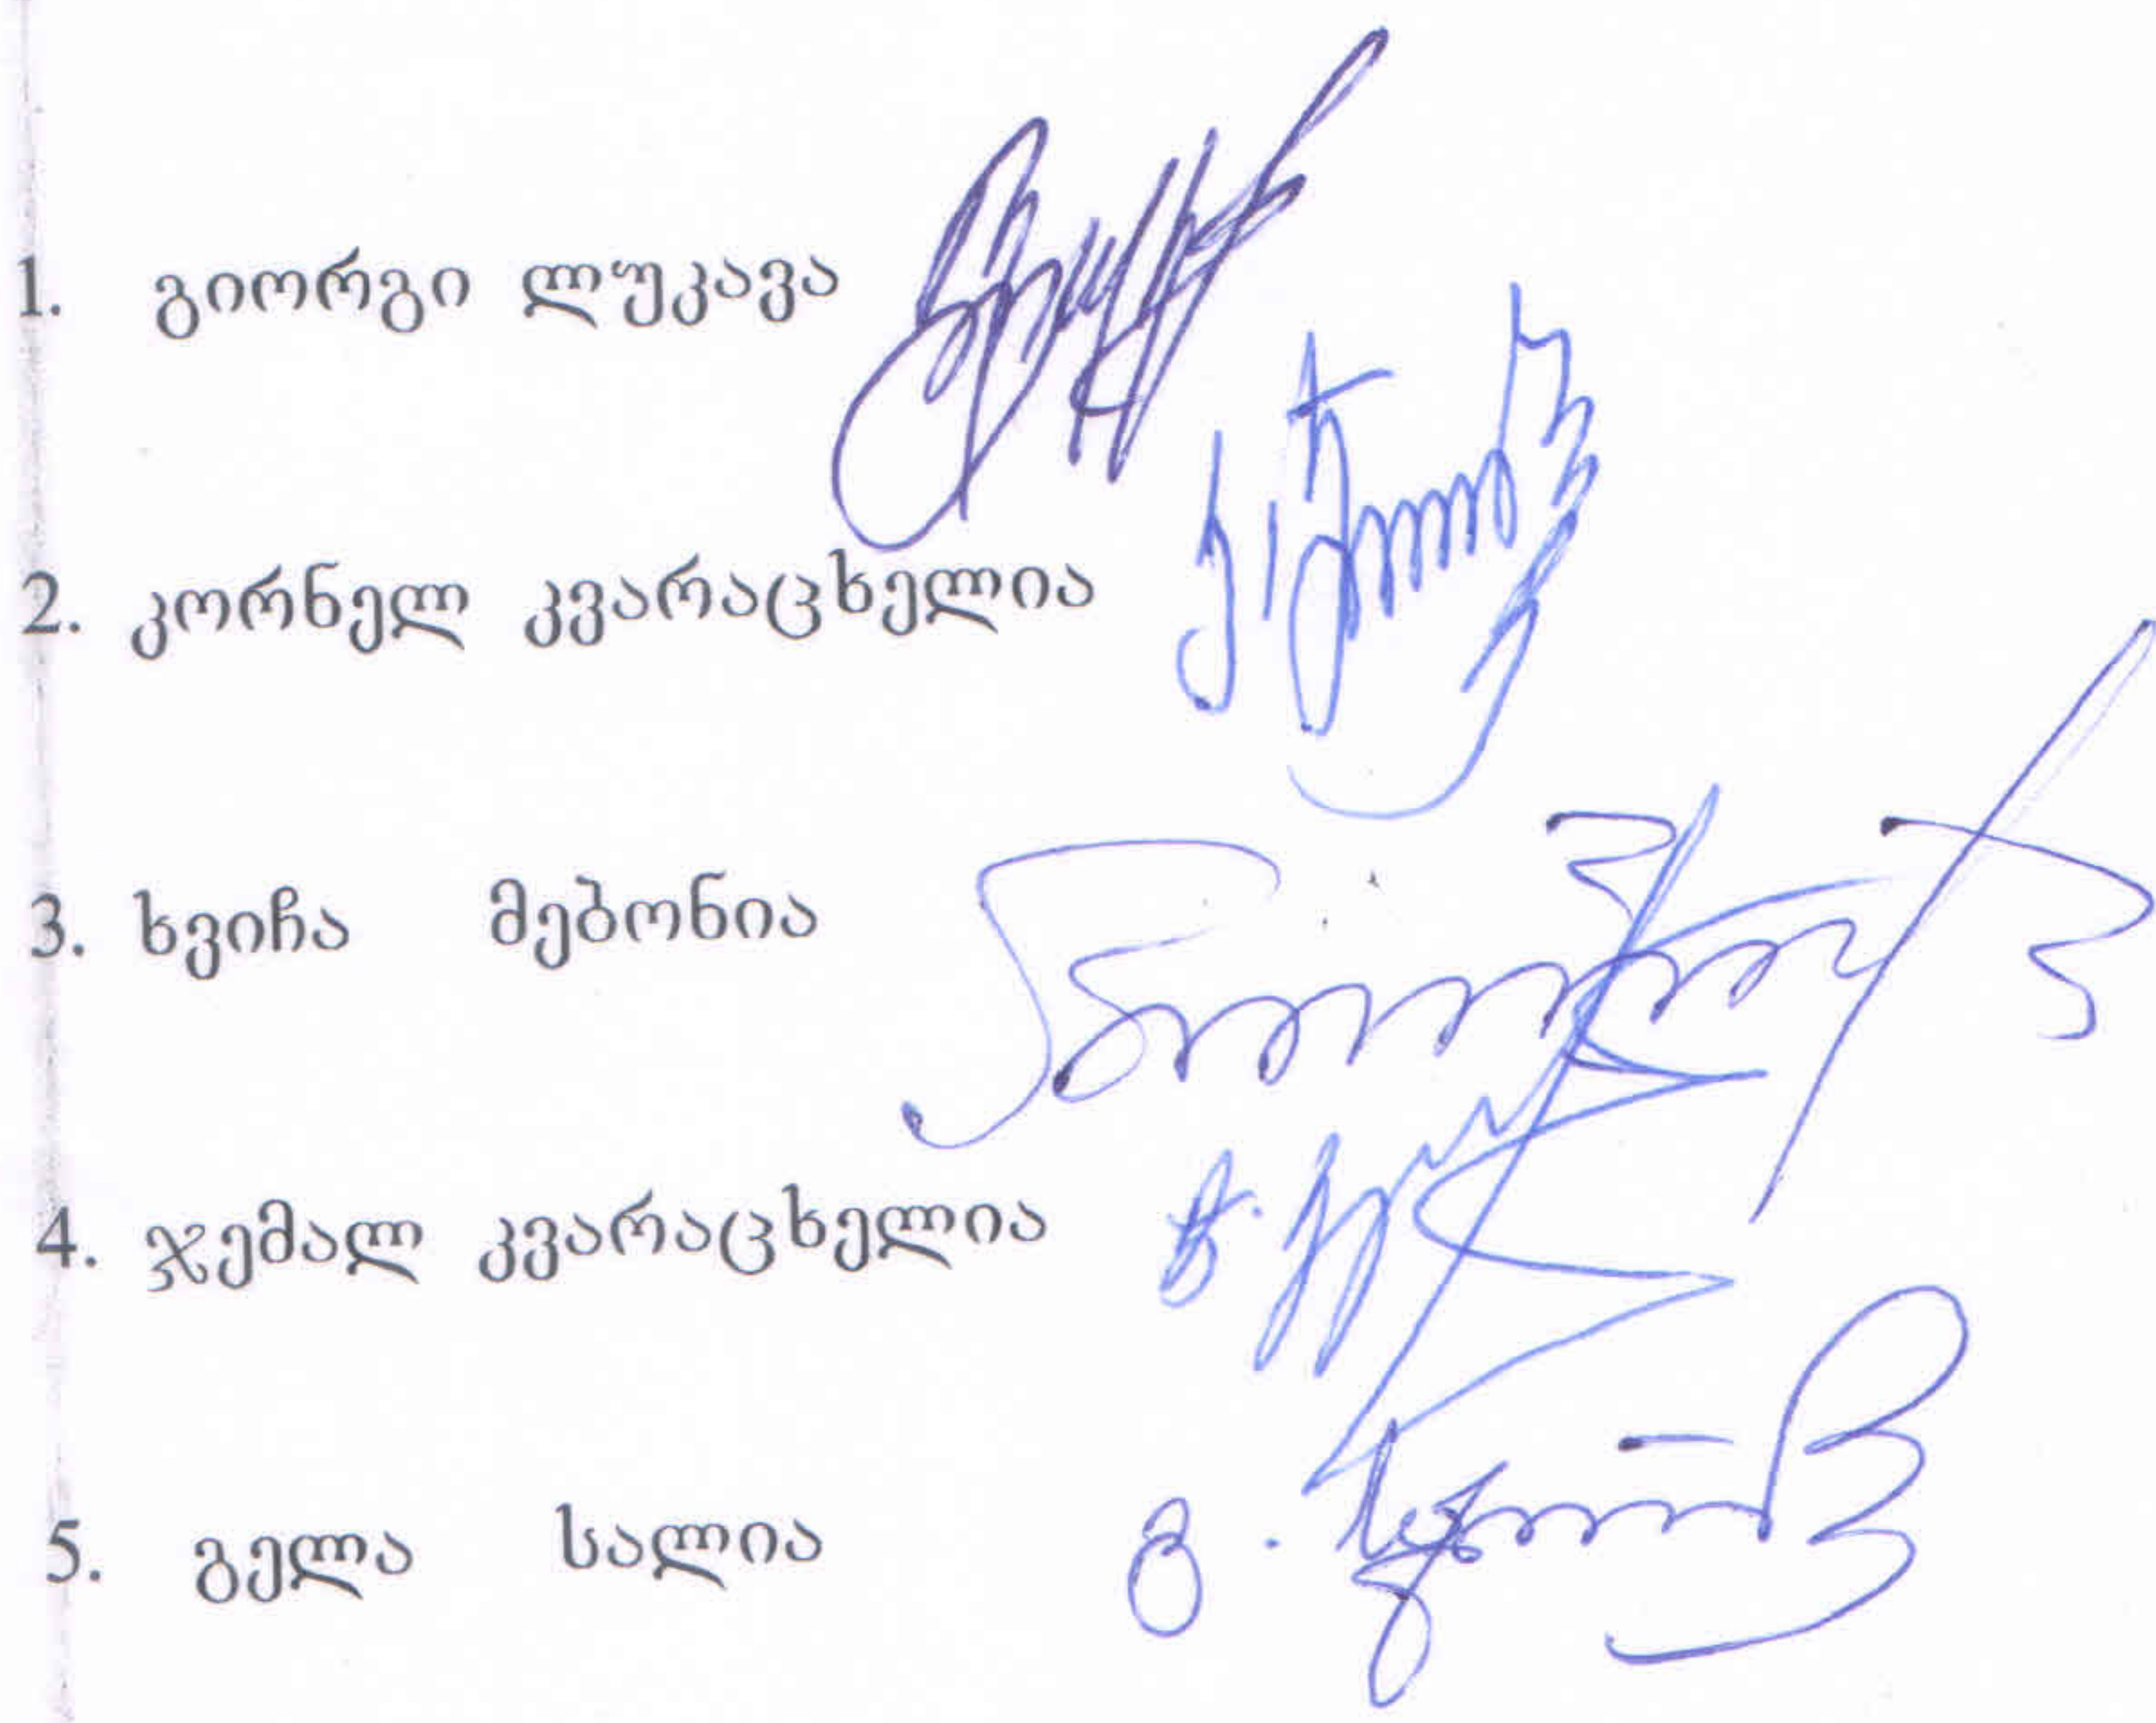 1. გიორგი ლუკავა
2. კორნელ კვარაცხელია
3. ხვიჩა მებონია
4. ჯემალ კვარაცხელია
5. გელა სალია